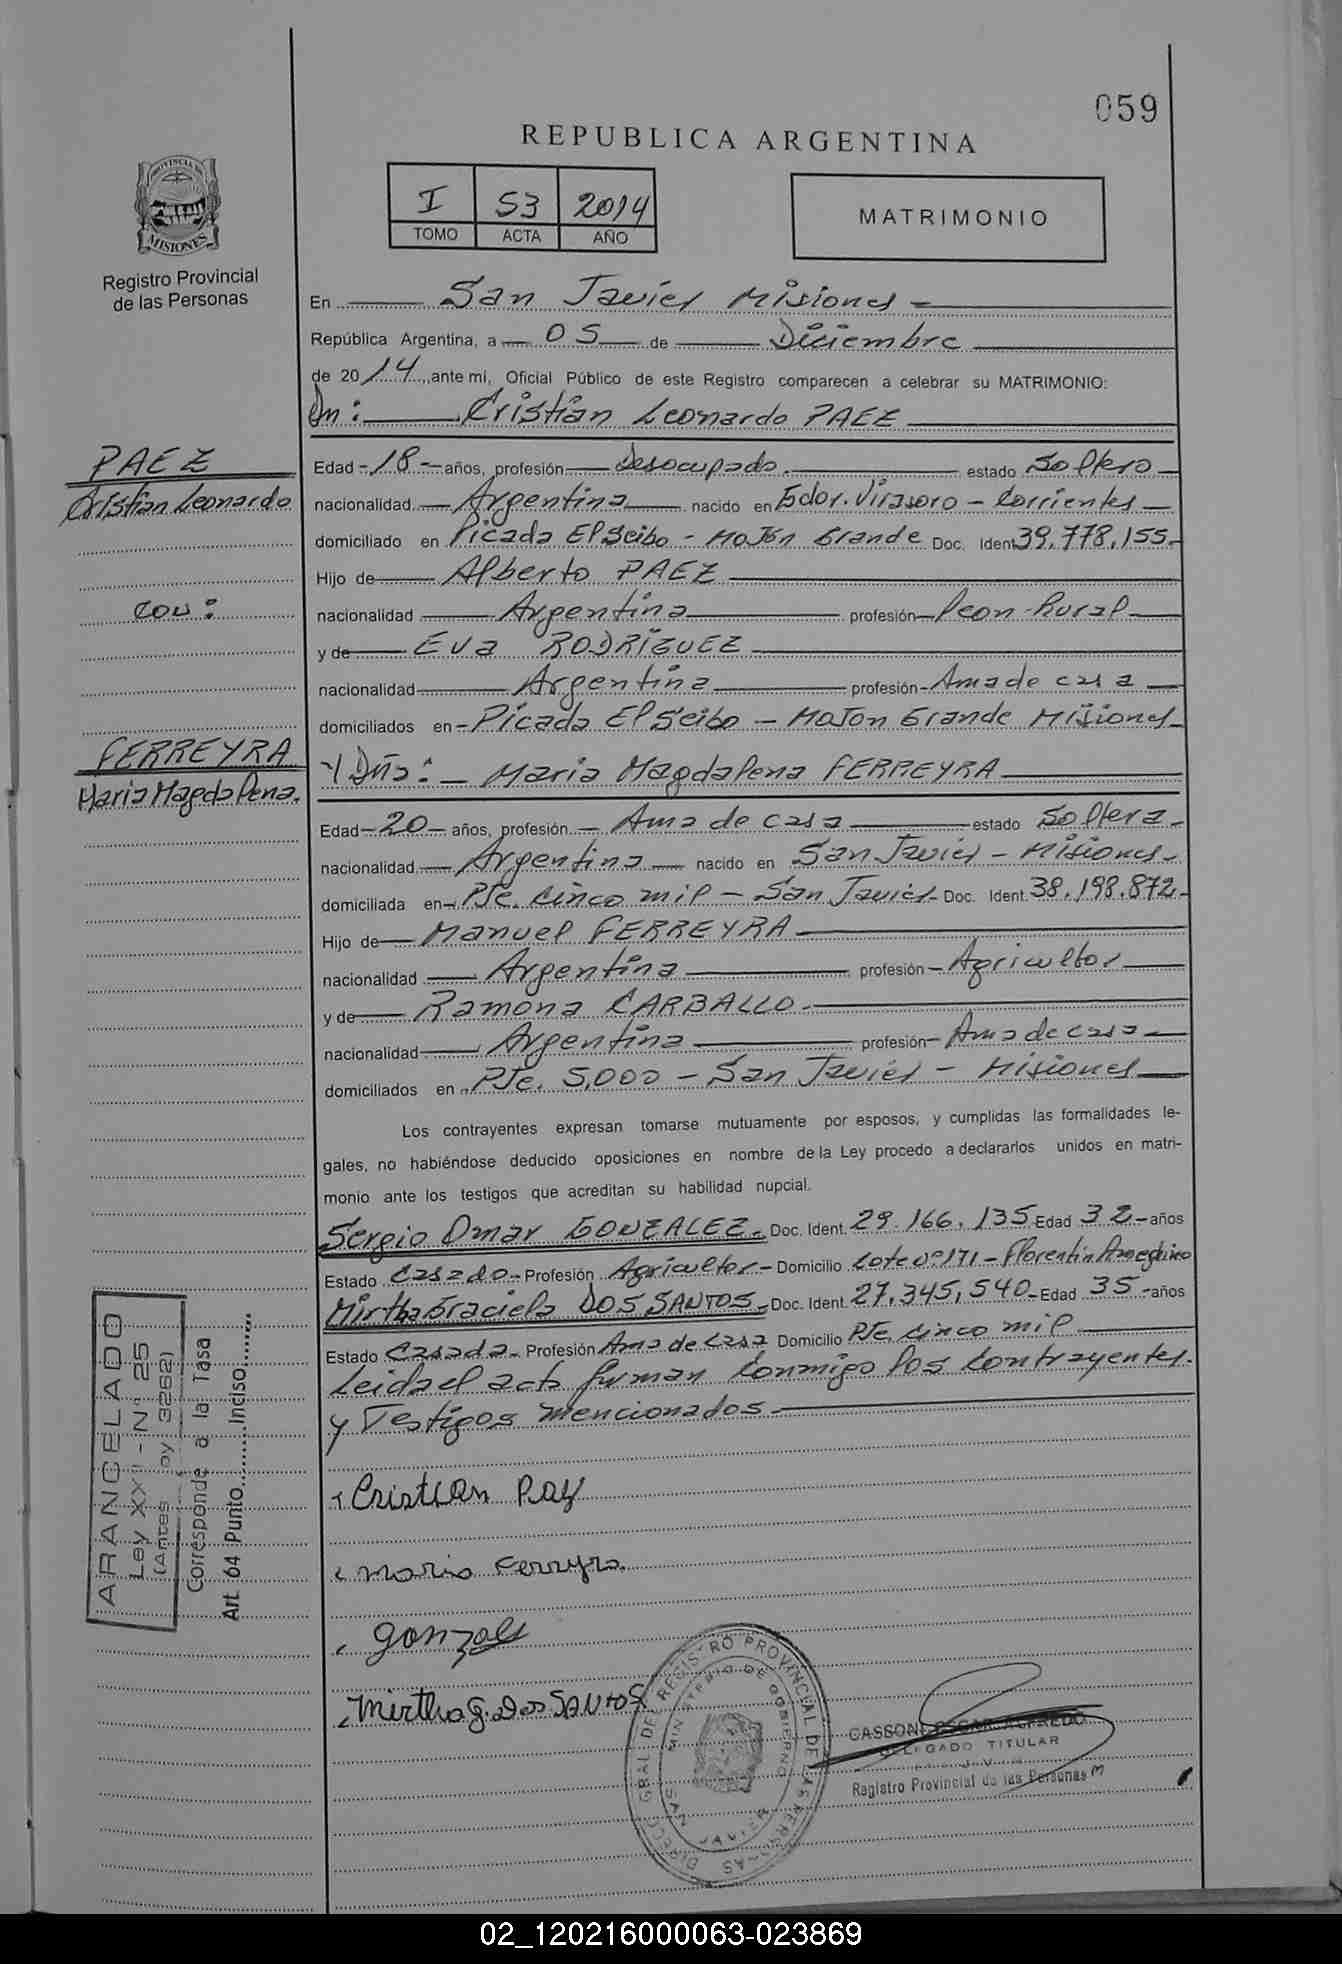 059
REPUBLICA ARGENTINA
PROVINCIA DE
MISIONES
Registro Provincial
de las Personas
I 53 2014
TOMO ACTA AÑO
MATRIMONIO
En San Javier Misiones
República Argentina, a 05 de Diciembre
de 2014, ante mi, Oficial Público de este Registro comparecen a celebrar su MATRIMONIO:
Dn: Cristian Leonardo PAEZ
PAEZ
Cristian Leonardo
con:
FERREYRA
Maria Magdalena.
Edad 18 años, profesión Desocupado. estado Soltero
nacionalidad Argentina nacido en Gdor. Virasoro - Corrientes
domiciliado en Picada El Seibo - Mojón Grande Doc. Ident 39.778.155.
Hijo de Alberto PAEZ
nacionalidad Argentina profesión Peon Rural
y de Eva RODRÍGUEZ
nacionalidad Argentina profesión Ama de casa
domiciliados en Picada El Seibo - Mojon Grande Misiones
Y Dña: Maria Magdalena FERREYRA
Edad 20 años, profesión Ama de casa estado Soltera
nacionalidad Argentina nacido en San Javier - Misiones
domiciliada en Pje. Cinco mil - San Javier Doc. Ident. 38.198.872
Hijo de Manuel FERREYRA
nacionalidad Argentina profesión Agricultor
y de Ramona CARBALLO.
nacionalidad Argentina profesión Ama de casa
domiciliados en PJe. 5.000 - San Javier - Misiones
Los contrayentes expresan tomarse mutuamente por esposos, y cumplidas las formalidades le-
gales, no habiéndose deducido oposiciones en nombre de la Ley procedo a declararlos unidos en matri-
monio ante los testigos que acreditan su habilidad nupcial.
Sergio Omar GONZALEZ Doc. Ident. 29.166.135 Edad 32 años
Estado Casado Profesión Agricultor Domicilio Lote nº 171 - Florentin Ameghino
Mirtha Graciela DOS SANTOS Doc. Ident. 27.345.540 Edad 35 años
Estado Casada Profesión Ama de Casa Domicilio PJe. Cinco mil
Leida el acta firman conmigo los contrayentes
y Testigos mencionados
Cristian Paz
Maria Ferreyra.
Gonzale
Mirtha G. Dos SANTOS
ARANCELADO
Ley XXII - Nº 25
(Antes Ley 3262)
Corresponde a la Tasa
Art. 64 Punto Inciso
DIRECC. GRAL. DEL REGISTRO PROVINCIAL DE LAS PERSONAS
MINISTERIO DE GOBIERNO
SAN JAVIER
CASSONI OSCAR ALFREDO
DELEGADO TITULAR
Registro Provincial de las Personas
02_120216000063-023869